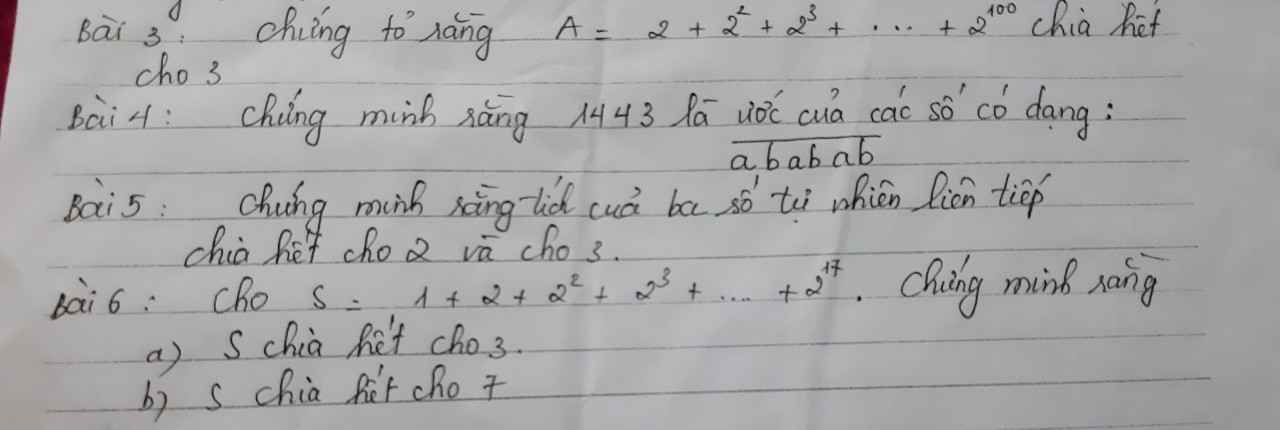 Bài 3: Chứng tỏ rằng A = 2 + 2² + 2³ + ... + 2¹⁰⁰ chia hết
cho 3
Bài 4: Chứng minh rằng 1443 là ước của các số có dạng:
ababab
Bài 5: Chứng minh rằng tích của ba số tự nhiên liên tiếp
chia hết cho 2 và cho 3.
Bài 6: Cho S = 1 + 2 + 2² + 2³ + .... + 2¹⁷. Chứng minh rằng
a) S chia hết cho 3.
b) S chia hết cho 7